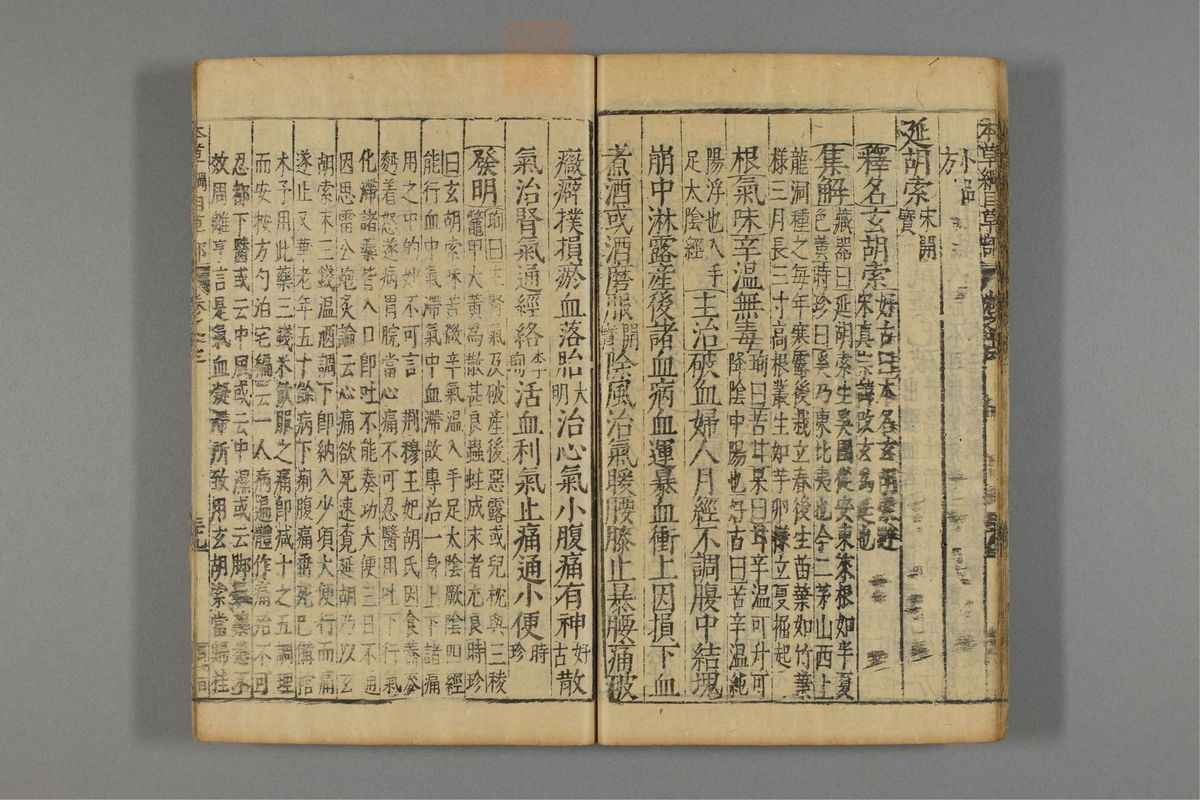 本草綱目草部
小品
方
延胡索宋開寶
釋名玄胡索好古曰本名玄胡索避宋真宗諱改玄為延也
集解藏器曰延胡索生奚國從安東來根如半夏色黃時珍曰奚乃東北夷也今二茅山西上
龍洞種之每年寒露後栽立春後生苗葉如竹葉樣三月長三寸高根叢生如芋卵樣立夏掘起
根氣味辛温無毒珣曰苦甘杲曰甘辛温可升可降陰中陽也好古曰苦辛温純
陽浮也入手足太陰經主治破血婦人月經不調腹中結塊
崩中淋露産後諸血病血運暴血衝上因損下血
煮酒或酒磨服開寶除風治氣暖腰膝止暴腰痛破
癥癖撲損瘀血落胎大明治心氣小腹痛有神好古散
氣治腎氣通經絡李珣活血利氣止痛通小便時珍
發明珣曰主腎氣及破産後惡露或兒枕與三稜鼈甲大黃為散甚良蟲蛀成末者尤良時珍
曰玄胡索味苦微辛氣温入手足太陰厥陰四經
能行血中氣滯氣中血滯故專治一身上下諸痛
用之中的妙不可言荆穆王妃胡氏因食蕎麥
麪着怒遂病胃脘當心痛不可忍醫用吐下行氣
化滯諸藥皆入口卽吐不能奏功大便三日不通
因思雷公炮炙論云心痛欲死速覓延胡乃以玄
胡索末三錢温酒調下卽納入少項大便行而痛
遂止又華老年五十餘病下痢腹痛垂死巳備棺
木予用此藥三錢米飲服之痛卽減十之五調理
而安按方勺泊宅編云一人病遍體作痛殆不可
忍都下醫或云中風或云中濕或云脚氣藥悉不
效周離亨言是氣血凝滯所致用玄胡索當歸桂
本草綱目草部